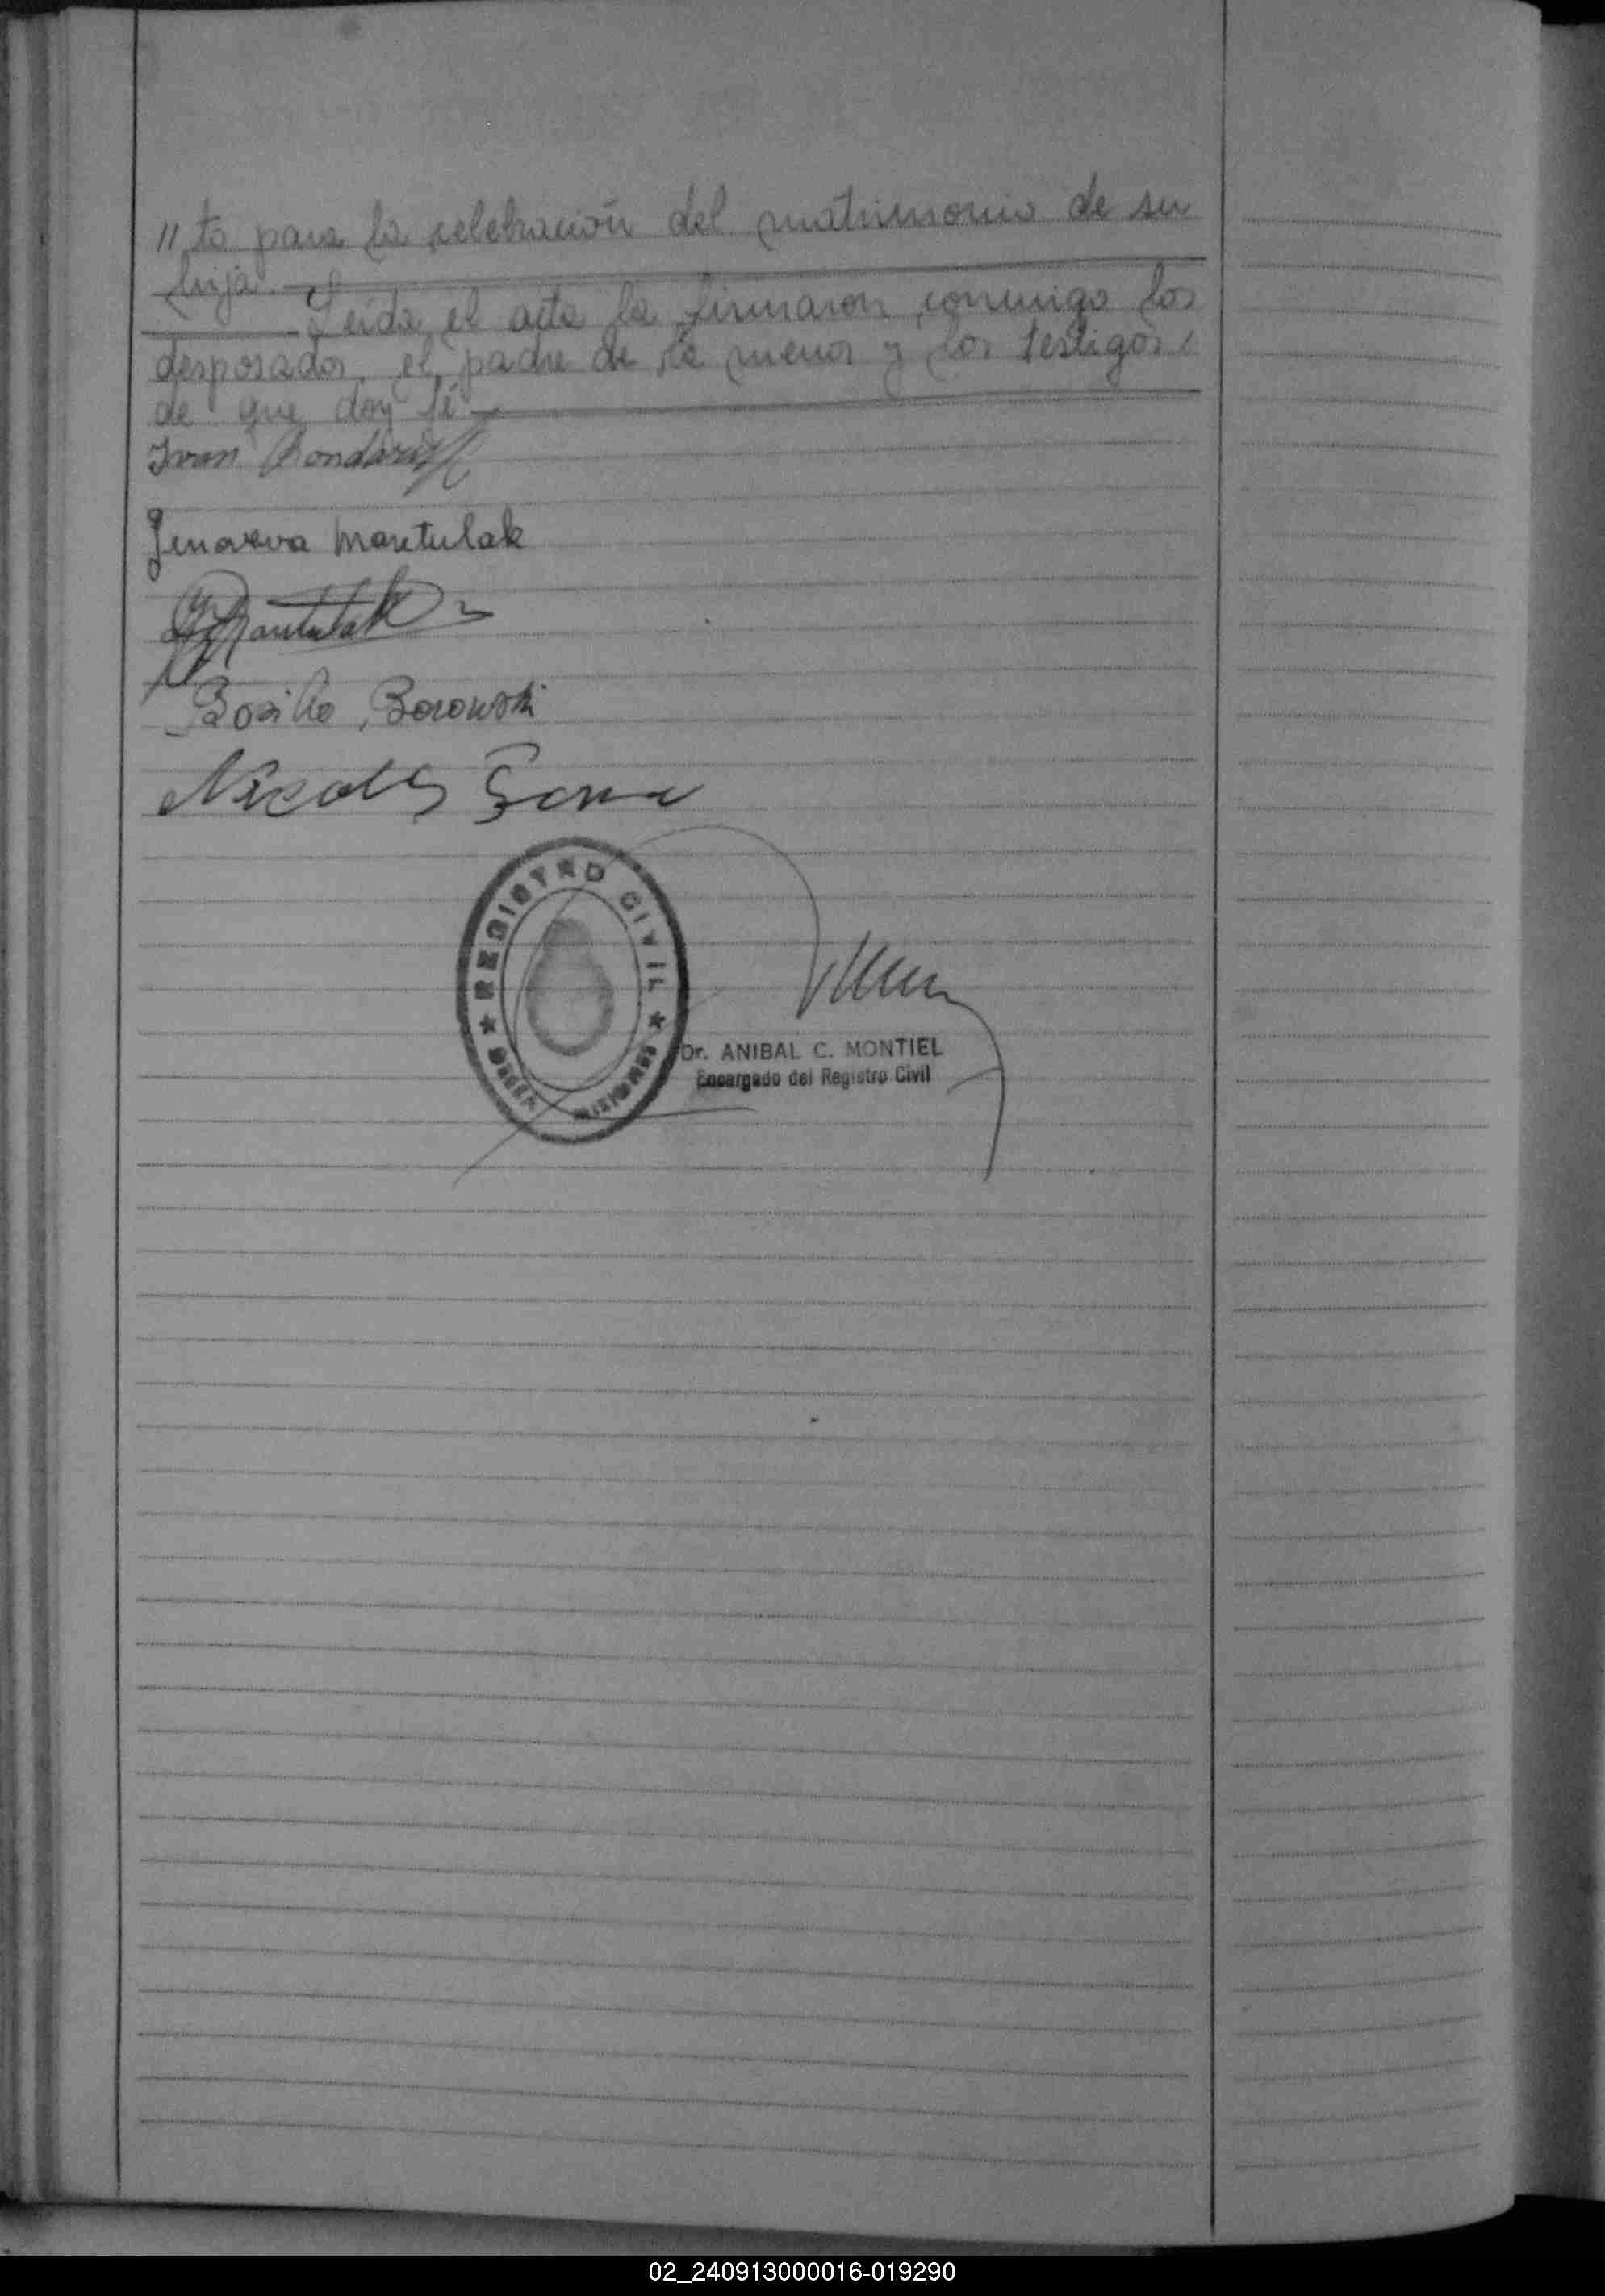 // to para la celebración del matrimonio de su
hija.
Leida el acta la firmaron conmigo los
desposados, el padre de la menor y los testigos
de que doy fé
Ivan
Genoveva Mantulak
Mantulak
Basilio Borowski
Nicolas
REGISTRO CIVIL
MISIONES
Dr. ANIBAL C. MONTIEL
Encargado del Registro Civil
02_240913000016-019290